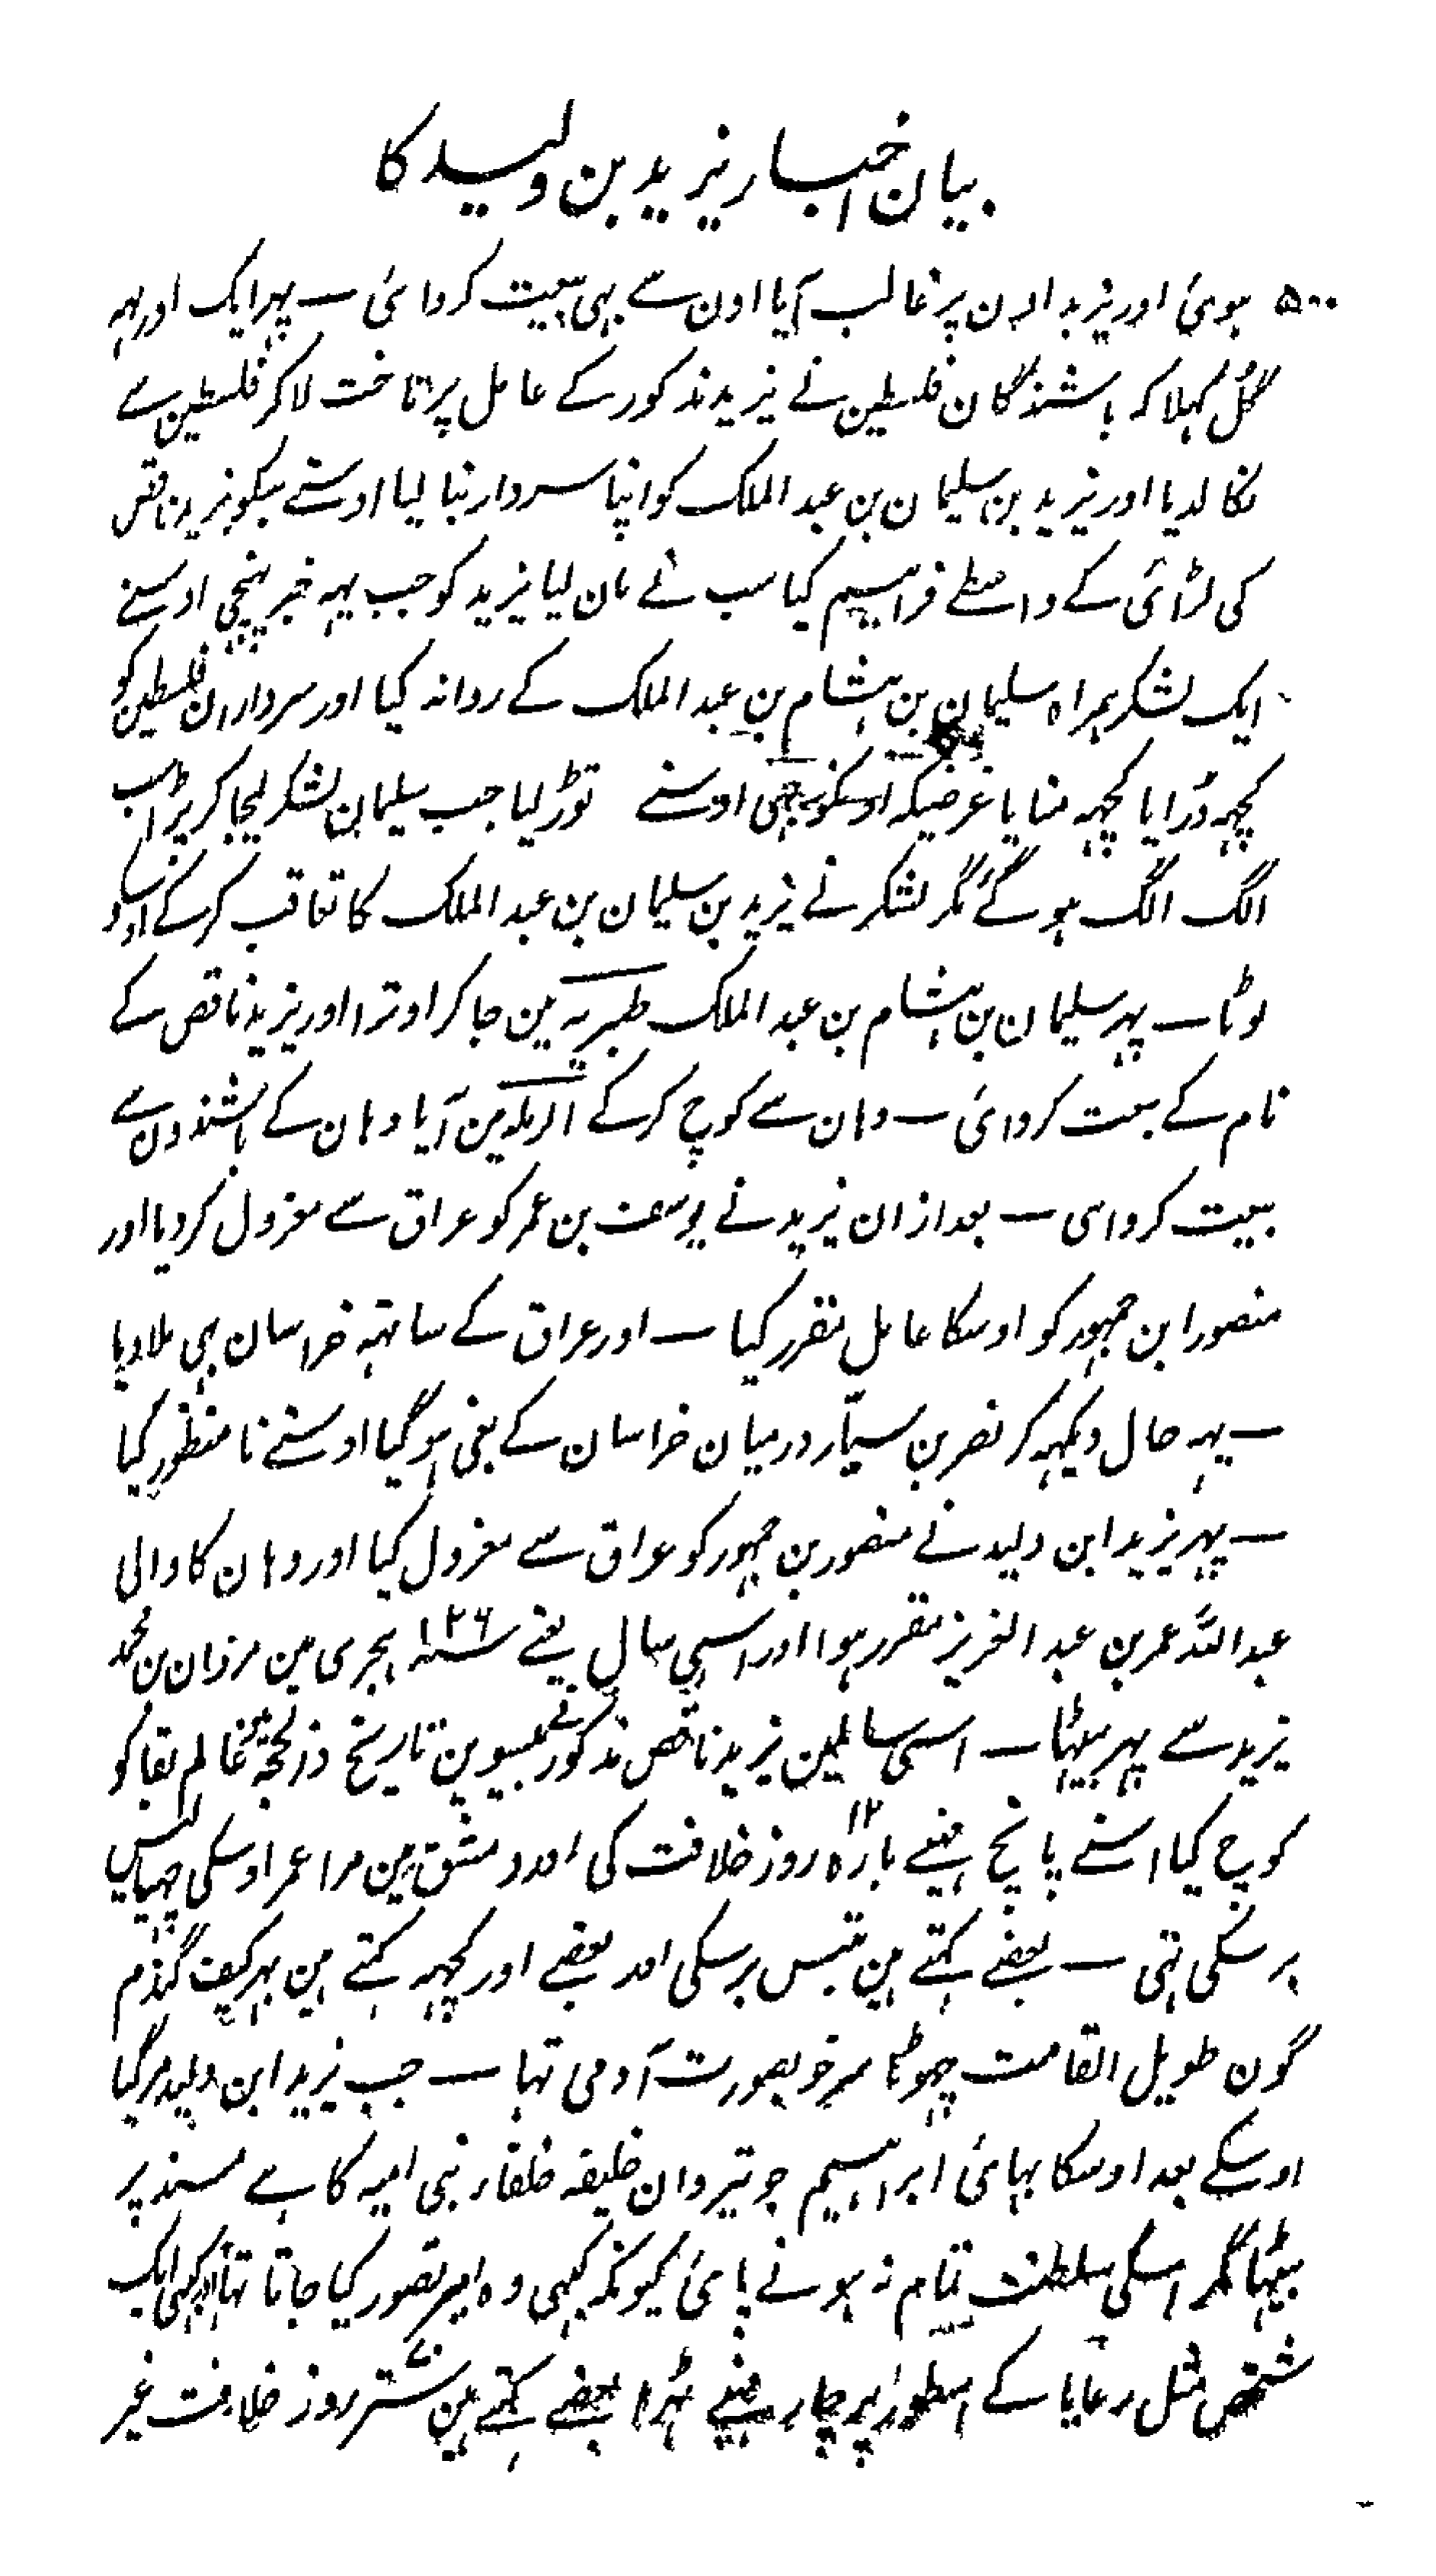 بیان اخبار یزید بن ولید کا
۵۰۰ ہوئی اور یزید اون پر غالب آیا اون سے بہی بیعت کروائی — پہر ایک اور یہہ
گل کہلا کہ باشندگان فلسطین نے یزید مذکور کے عامل پر تاخت لا کر فلسطین سے
نکالدیا اور یزید بن سلیمان بن عبد الملک کو اپنا سردار بنا لیا اوسنے سبکو یزید ناقص
کی لڑائی کے واسطے فراہیم کیا سب نے مان لیا یزید کو جب یہہ خبر پہنچی اوسنے
ایک لشکر ہمراہ سلیمان بن ہشام بن عبد الملک کے روانہ کیا اور سرداران فلسطین کو
کچہہ ڈرایا کچہہ منایا غرضیکہ اوسکو بہی اوسنے توڑ لیا جب سلیمان لشکر لیجا کر پڑا سب
الگ الگ ہو گئے مگر لشکر نے یزید بن سلیمان بن عبد الملک کا تعاقب کرکے اوسکو
لوٹا — پہر سلیمان بن ہشام بن عبد الملک طبریہ مین جا کر اوترا اور یزید ناقص کے
نام کے بیعت کروائی — وہان سے کوچ کرکے الرملہ مین آیا وہان کے باشندون سے
بیعت کروای — بعد ازان یزید نے یوسف بن عمر کو عراق سے معزول کر دیا اور
منصور ابن جمہور کو اوسکا عامل مقرر کیا — اور عراق کے ساتہہ خراسان بہی ملا دیا
— یہہ حال دیکہہ کر نصر بن سیّار درمیان خراسان کے بغی ہو گیا اوسنے نا منظور کیا
— پہر یزید ابن ولید نے منصور بن جمہور کو عراق سے معزول کیا اور وہان کا والی
عبد اللہ عمر بن عبد العزیز مقرر ہوا اور اسی سال یعنے سنہ ۱۲۶ ہجری مین مروان بن محمد
یزید سے پہر بیٹہا — اسی سالمین یزید ناقص مذکور نے بیسوین تاریخ ذو الحجہ عالم بقا کو
کوچ کیا اسنے پانچ مہنیے بارہ ۱۲ روز خلافت کی اور دمشق مین مرا عمر اوسکی چہیالیس
برسکی تہی — بعضے کہتے مین تیس برسکی اور بعضے اور کچہہ کہتے ہین بہر کیف گندم
گون طویل القامت چہوٹا سر خوبصورت آدمی تہا — جب یزید ابن ولید مر گیا
اوسکے بعد اوسکا بہائی ابراہیم جو تیروان خلیفہ خلفاء بنی امیہ کا ہے مسند پر
بیٹہا مگر اسکی سلطنت تمام نہ ہونے پائی کیونکہ کبہی وہ امیر تصور کیا جاتا تہا اور کبہی ایک
شخص مثل رعایا کے اسطور پر چار مہنیے ٹہرا بعضے کہتے ہین ستر روز خلافت غیر